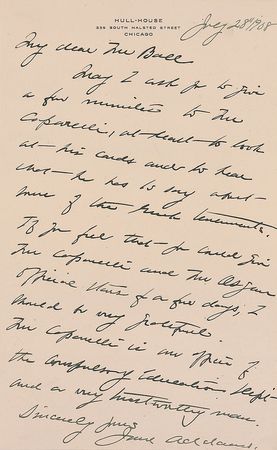 HULL-HOUSE
335 SOUTH HALSTED STREET
CHICAGO
July 28th/08
My dear Mr Ball
May I ask you to give
a few minutes to Mr
Caparelli, at least to look
at his cards and to hear
what he has to say about
some of the Greek tenements.
If you feel that you could give
Mr Caparelli and Mr
official stars for a few days, I
should be very grateful.
Mr Caparelli is an officer of
the Compulsory Education Dept
and a very trustworthy man.
Sincerely yours
Jane Addams.